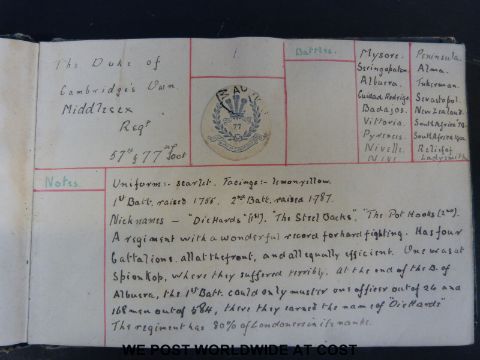 The Duke of
Cambridge's Own
Middlesex
Regt
57th & 77th Foot
1
77
Battles.
Mysore.
Seringapatam
Albuera.
Cuidad Rodrigo
Badajos
Vittoria.
Pyrenees.
Nivelle.
Nive
Peninsula.
Alma.
Inkerman.
Sevastopol.
New Zealand.
South Africa 79.
South Africa 1900.
Relief of
Ladysmith
Notes.
Uniforms:- Scarlet. Facings:- lemon yellow.
1st Batt. raised 1755. 2nd Batt. raised 1787.
Nicknames - "Die Hards" (1st). "The Steel Backs", "The Pot Hooks (2nd).
A regiment with a wonderful record for hard fighting. Has four
battalions, all at the front, and all equally efficient. One was at
Spion Kop, where they suffered terribly. At the end of the B. of
Albuera, the 1st Batt. could only muster one officer out of 24 and
168 men out of 584, there they earned the name of "Die Hards"
The regiment has 80% of Londoners in its ranks.
WE POST WORLDWIDE AT COST